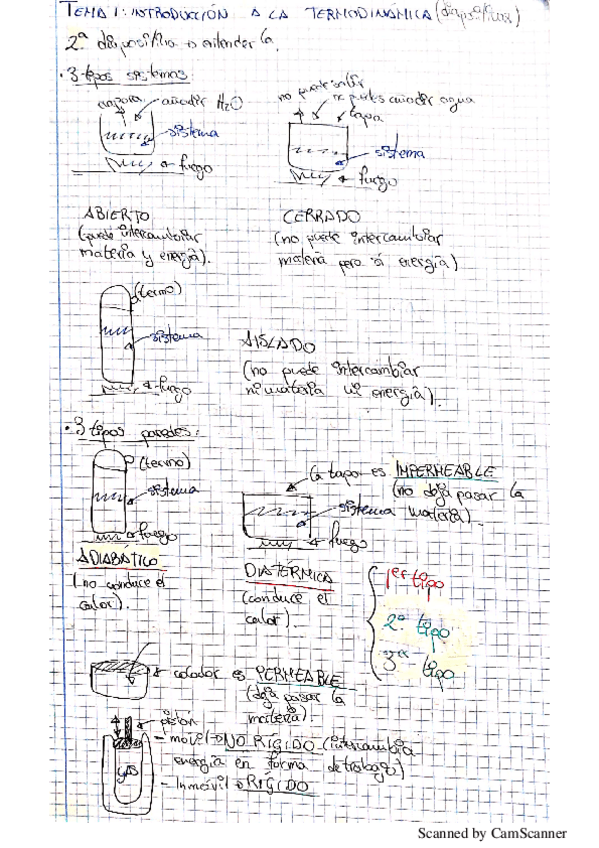 TEMA 1: INTRODUCCIÓN A LA TERMODINÁMICA (diapositivas)
2ª diapositiva → entenderla.
· 3 tipos sistemas:
vapora añadir H₂O
sistema
fuego
no puede salir
no puedes añadir agua
tapa
sistema
fuego
ABIERTO
(puede intercambiar
materia y energía).
CERRADO
(no puede intercambiar
materia pero sí energía)
(termo)
sistema
fuego
AISLADO
(no puede intercambiar
ni materia ni energía).
· 3 tipos paredes:
(termo)
sistema
fuego
ADIABÁTICO
(no conduce el
calor).
La tapa es IMPERMEABLE
(no deja pasar la
materia).
sistema
fuego
DIATÉRMICA
(conduce el
calor).
1er tipo
2º tipo
3er tipo
colador es PERMEABLE
(deja pasar la
materia).
pistón
- móvil → NO RÍGIDO (intercambia
energía en forma de trabajo)
- Inmóvil → RÍGIDO
gas
Scanned by CamScanner